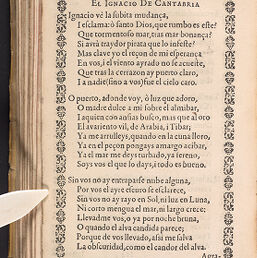 EL IGNACIO DE CANTABRIA
Ignacio vè la subita mudança,
I esclama: ò santo Dios, que rumbo es este?
Que tormentoso mar, tras mar bonança?
Si avrà traydor pirata que lo infeste?
Mas clave yo el reçon de mi esperança
En vos, i el viento ayrado no se acueste,
Que tras la cerrazon ay puerto claro,
I a nadie (sino a vos) fue el cielo caro.
O puerto, adonde voy, ò luz que adoro,
O madre dulce a mi sobre el almibar,
I a quien con ansias busco, mas que al oro
El avariento vil, de Arabia, i Tibar;
Ya me arrulleys, quando en la cuna lloro,
Ya en el peçon pongays amargo acibar,
Ya el mar me deys turbado, ya sereno,
Soys vos el que lo days, i todo es bueno.
Sin vos no ay entrparse nube alguna,
Por vos el ayre escuro se esclarece,
Sin vos no ay rayo en Sol, ni luz en Luna,
Ni corto mengua el mar, ni largo crece:
Llevadme vos, o ya por noche bruna,
O quando el alva candida parece;
Porque de vos llevado, assi me salva
La obscuridad, como el candor del alva.